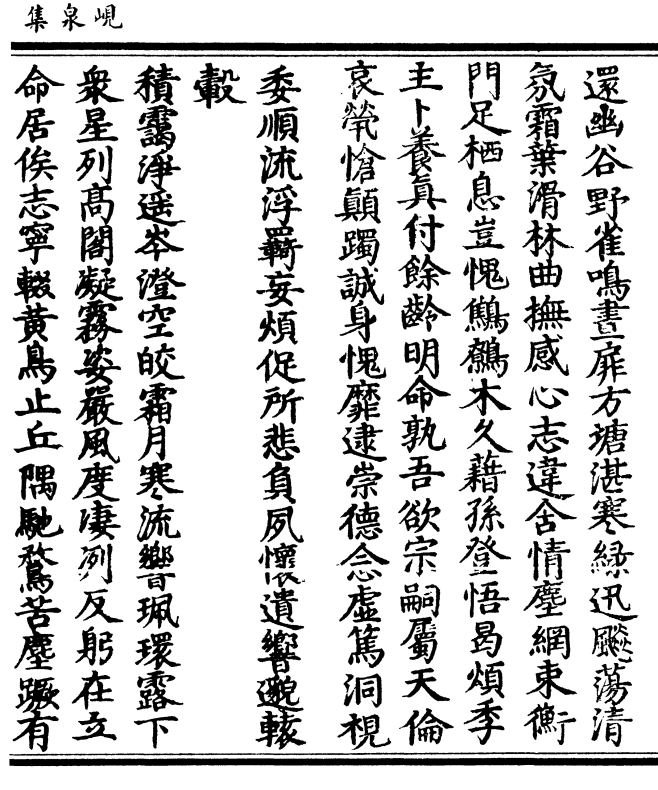 峴泉集
還幽谷野雀鳴晝扉方塘湛寒緑迅飈蕩清
氛霜葉滑林曲撫感心志違舍情塵網束衡
門足栖息豈愧鷦鷯木久藉孫登悟曷煩季
主卜養真付餘齡明命孰吾欲宗嗣屬天倫
哀煢愴顛躅誠身愧靡逮崇德念虚篤洞視
委順流浮羈妄煩促所悲負夙懷遺響邈轅
轂
積靄淨遥岑澄空皎霜月寒流響珮環露下
衆星列高閣凝霧姿嚴風度凄冽反躬在立
命居俟志寧輟黄鳥止丘隅馳騖苦塵蹶有